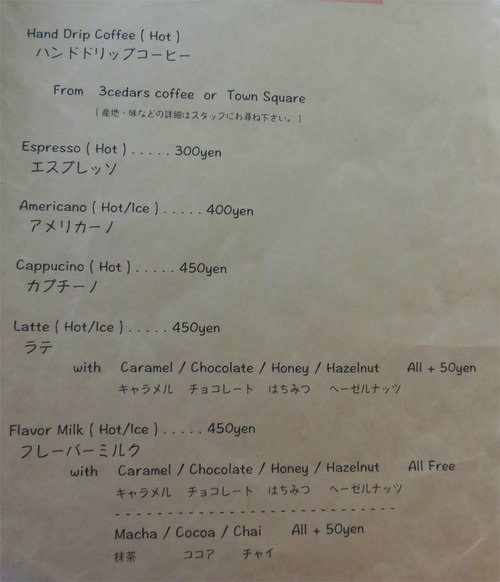 Hand Drip Coffee ( Hot )
ハンドドリップコーヒー
From 3cedars coffee or Town Square
( 産地・味などの詳細はスタッフにお尋ね下さい。 )
Espresso ( Hot ) . . . . . 300yen
エスプレッソ
Americano ( Hot/Ice ) . . . . . 400yen
アメリカーノ
Cappucino ( Hot ) . . . . . 450yen
カプチーノ
Latte ( Hot/Ice ) . . . . . 450yen
ラテ
with Caramel / Chocolate / Honey / Hazelnut All + 50yen
キャラメル チョコレート はちみつ ヘーゼルナッツ
Flavor Milk ( Hot/Ice ) . . . . . 450yen
フレーバーミルク
with Caramel / Chocolate / Honey / Hazelnut All Free
キャラメル チョコレート はちみつ ヘーゼルナッツ
Macha / Cocoa / Chai All + 50yen
抹茶 ココア チャイ